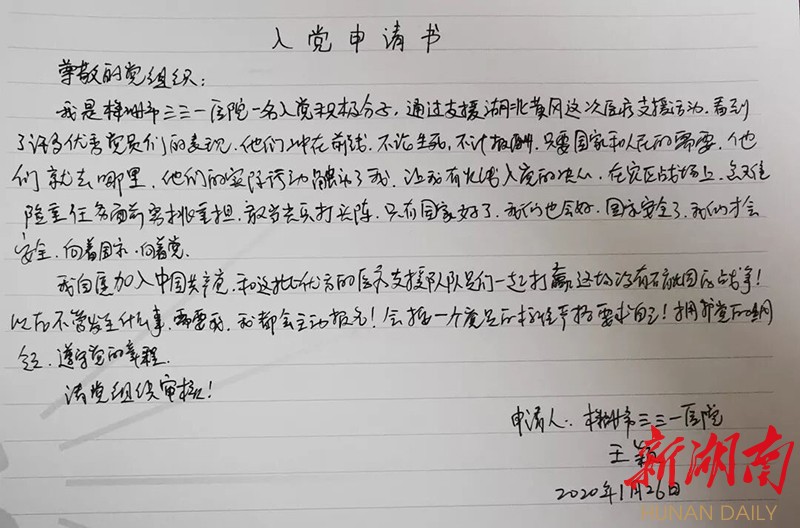 入党申请书
尊敬的党组织：
我是株洲市三三一医院一名入党积极分子，通过支援湖北黄冈这次医疗支援活动，看到
了许多优秀党员们的表现，他们冲在前线，不论生死，不计报酬，只要国家和人民的需要，他
们就去哪里，他们的实际行动触动了我，让我有火线入党的决心，在灾区战场上，急难
险重任务面前勇挑重担，敢当尖兵打头阵，只有国家好了，我们也会好，国家安全了，我们才会
安全，向着国家，向着党。
我自愿加入中国共产党，和这批优秀的医疗支援队队员们一起打赢这场没有硝烟的战争！
以后不管发生什么事，需要我，我都会主动报名！会按一个党员的标准严格要求自己！拥护党的纲
领，遵守党的章程。
请党组织审核！
申请人：株洲市三三一医院
王颖
2020年1月26日
新湖南
HUNAN DAILY